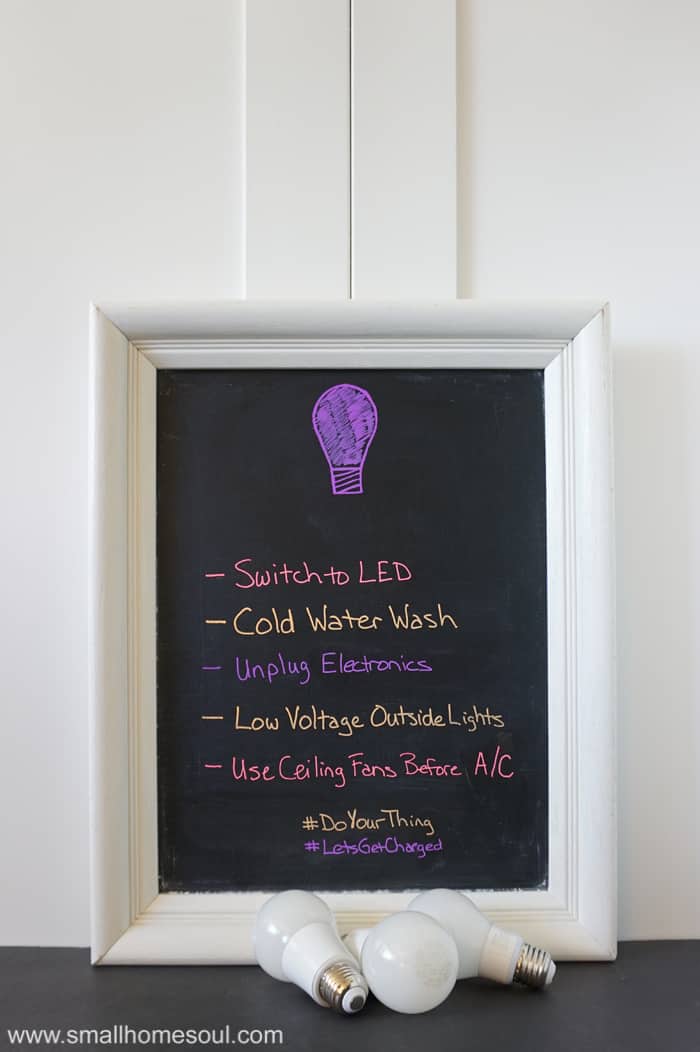 - Switch to LED
- Cold Water Wash
- Unplug Electronics
- Low Voltage Outside Lights
- Use Ceiling Fans Before A/C
#DoYourThing
#LetsGetCharged
www.smallhomesoul.com